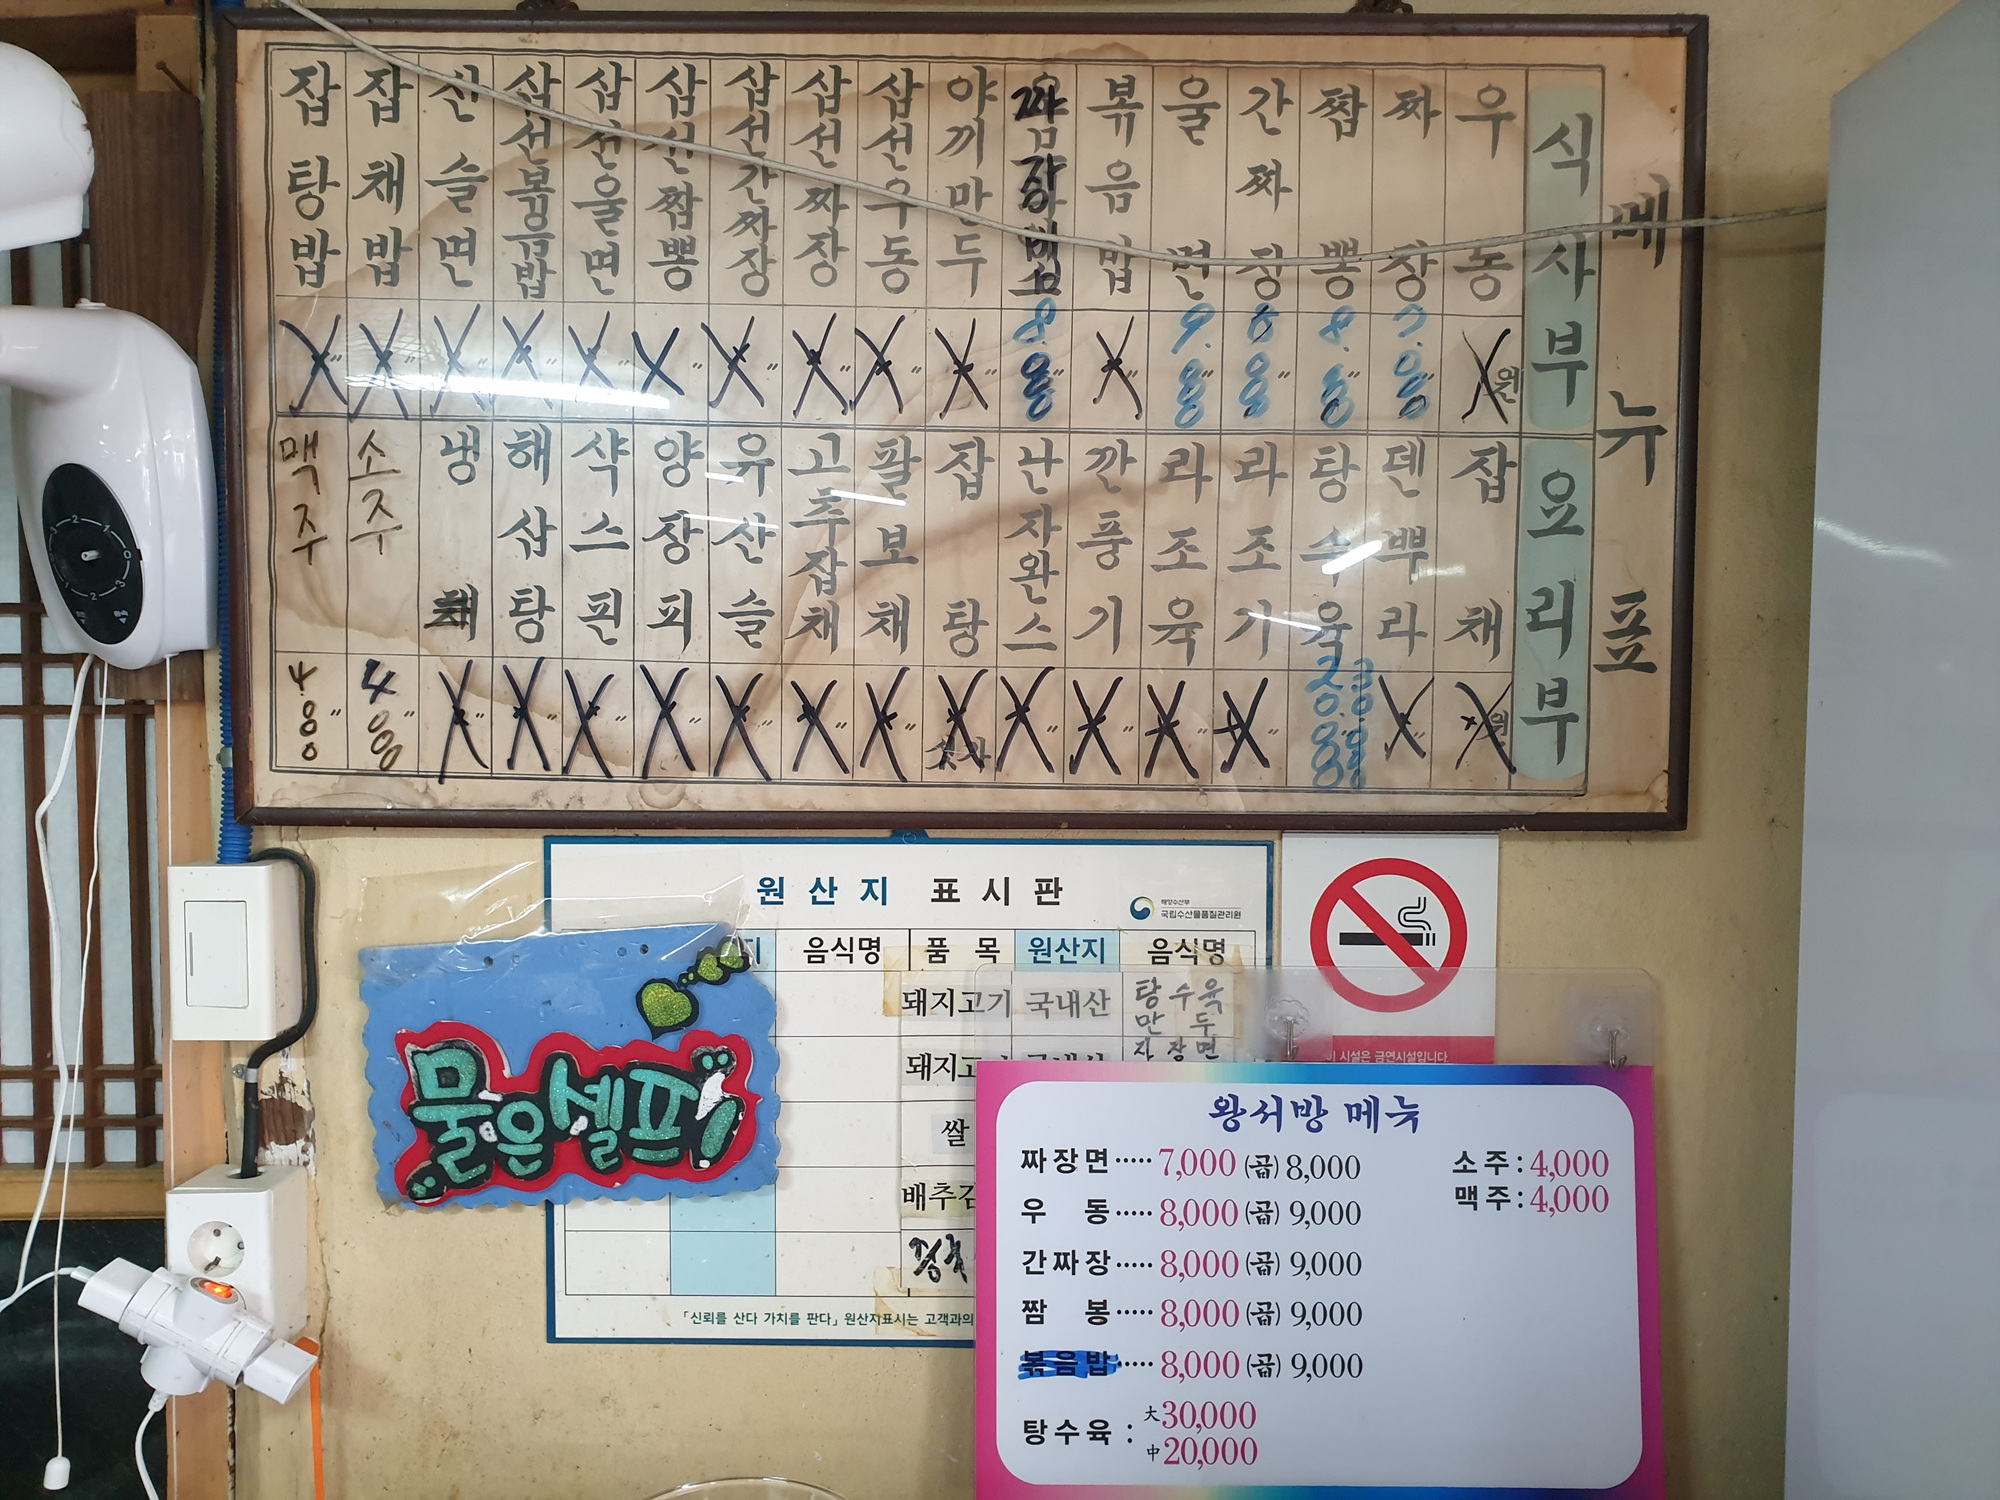 메뉴표
식사부
우동 원
짜장 7.000"
짬뽕 8.000
간짜장 8.000"
울면 9.000"
볶음밥 "
8.000
야끼만두 "
삼선우동 "
삼선짜장 "
삼선간짜장 "
삼선짬뽕 "
삼선울면 "
삼선볶음밥 "
신슬면 "
잡채밥 "
잡탕밥 "
요리부
잡채 원
덴뿌라 "
탕수육 20.000 30.000
라조기 "
라조육 "
깐풍기 "
난자완스 "
잡탕 "
팔보채 "
고추잡채 "
유산슬 "
양장피 "
샥스핀 "
해삼탕 "
냉채 "
소주 4000"
맥주 4000"
원산지 표시판
해양수산부
국립수산물품질관리원
지 음식명 품목 원산지 음식명
돼지고기 국내산 탕수육 만두
돼지고 자장면
쌀
배추김
「신뢰를 산다 가치를 판다」 원산지표시는 고객과의
물은셀프!
이 시설은 금연시설입니다.
왕서방 메뉴
짜장면 ····· 7,000 (곱) 8,000
우동 ····· 8,000 (곱) 9,000
간짜장 ····· 8,000 (곱) 9,000
짬봉 ····· 8,000 (곱) 9,000
볶음밥 ····· 8,000 (곱) 9,000
탕수육 : 大30,000
中20,000
소주 : 4,000
맥주 : 4,000